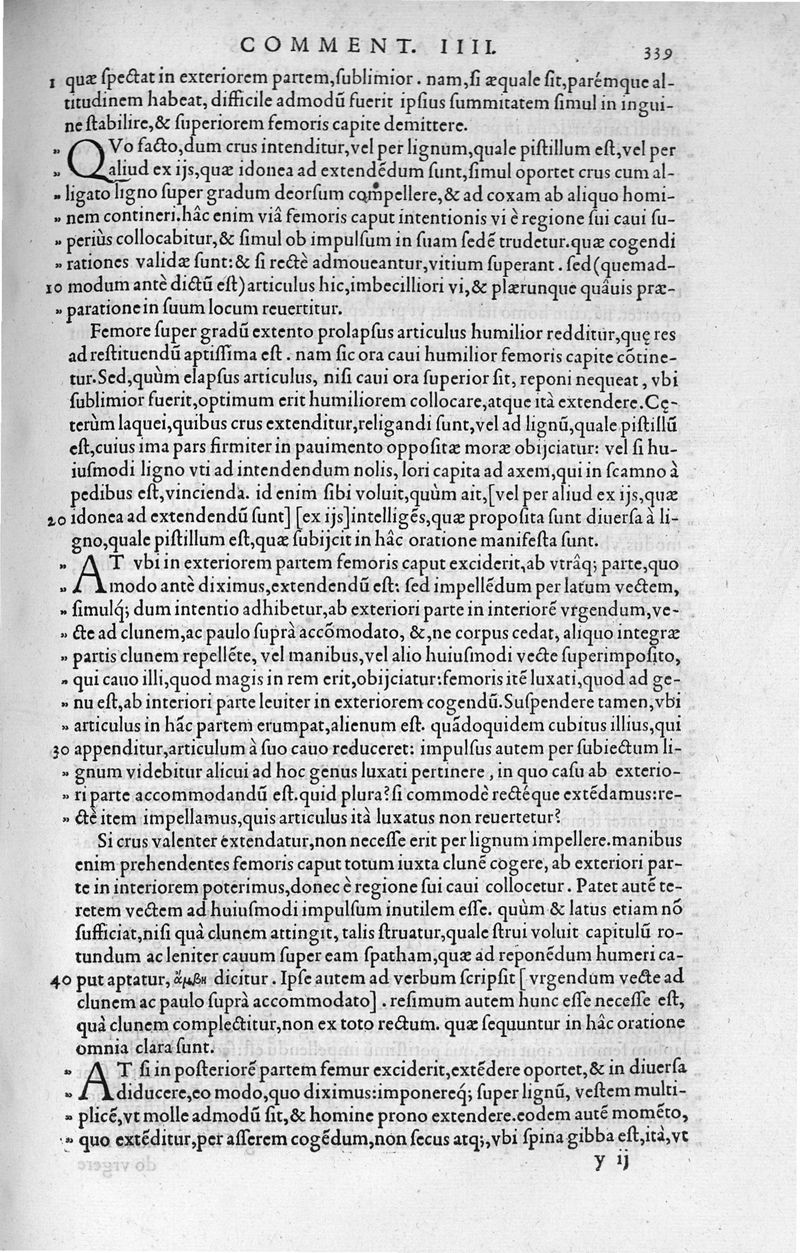 COMMENT. IIII. 339
1 quæ ſpectat in exteriorem partem,ſublimior. nam,ſi æquale ſit,parémque al-
titudinem habeat, difficile admodũ fuerit ipſius ſummitatem ſimul in ingui-
ne ſtabilire,& ſuperiorem femoris capite demittere.
» QVo facto,dum crus intenditur,vel per lignum,quale piſtillum eſt,vel per
» aliud ex ijs,quæ idonea ad extendẽdum ſunt,ſimul oportet crus cum al-
» ligato ligno ſuper gradum deorſum compellere,& ad coxam ab aliquo homi-
» nem contineri.hâc enim viâ femoris caput intentionis vi è regione ſui caui ſu-
» periùs collocabitur,& ſimul ob impulſum in ſuam ſedẽ trudetur.quæ cogendi
» rationes validæ ſunt:& ſi rectè admoueantur,vitium ſuperant. ſed(quemad-
10 modum antè dictũ eſt)articulus hic,imbecilliori vi,& plærunque quâuis præ-
» paratione in ſuum locum reuertitur.
Femore ſuper gradũ extento prolapſus articulus humilior redditur,quę res
ad reſtituendũ aptiſſima eſt. nam ſic ora caui humilior femoris capite cõtine-
tur.Sed,quùm elapſus articulus, niſi caui ora ſuperior ſit, reponi nequeat, vbi
ſublimior fuerit,optimum erit humiliorem collocare,atque ità extendere.Cę-
terùm laquei,quibus crus extenditur,religandi ſunt,vel ad lignũ,quale piſtillũ
eſt,cuius ima pars firmiter in pauimento oppoſitæ moræ obijciatur: vel ſi hu-
iuſmodi ligno vti ad intendendum nolis, lori capita ad axem,qui in ſcamno à
pedibus eſt,vincienda. id enim ſibi voluit,quùm ait,[vel per aliud ex ijs,quæ
20 idonea ad extendendũ ſunt] [ex ijs]intelligẽs,quæ propoſita ſunt diuerſa à li-
gno,quale piſtillum eſt,quæ ſubijcit in hâc oratione manifeſta ſunt.
» AT vbi in exteriorem partem femoris caput exciderit,ab vtrâq; parte,quo
» modo antè diximus,extendendũ eſt: ſed impellẽdum per latum vectem,
» ſimulq́; dum intentio adhibetur,ab exteriori parte in interiorẽ vrgendum,ve-
» cte ad clunem,ac paulo ſuprà accõmodato, &,ne corpus cedat, aliquo integræ
» partis clunem repellẽte, vel manibus,vel alio huiuſmodi vecte ſuperimpoſito,
» qui cauo illi,quod magis in rem erit,obijciatur:femoris itẽ luxati,quod ad ge-
» nu eſt,ab interiori parte leuiter in exteriorem cogendũ.Suſpendere tamen,vbi
» articulus in hãc partem erumpat,alienum eſt. quãdoquidem cubitus illius,qui
30 appenditur,articulum à ſuo cauo reduceret: impulſus autem per ſubiectum li-
» gnum videbitur alicui ad hoc genus luxati pertinere, in quo caſu ab exterio-
» ri parte accommodandũ eſt.quid plura?ſi commodè rectéque extẽdamus:re-
» ctè item impellamus,quis articulus ità luxatus non reuertetur?
Si crus valenter extendatur,non neceſſe erit per lignum impellere.manibus
enim prehendentes femoris caput totum iuxta clunẽ cogere, ab exteriori par-
te in interiorem poterimus,donec è regione ſui caui collocetur. Patet autẽ te-
retem vectem ad huiuſmodi impulſum inutilem eſſe. quùm & latus etiam nõ
ſufficiat,niſi quà clunem attingit, talis ſtruatur,quale ſtrui voluit capitulũ ro-
tundum ac leniter cauum ſuper eam ſpatham,quæ ad reponẽdum humeri ca-
40 put aptatur, ἄμβη dicitur. Ipſe autem ad verbum ſcripſit [ vrgendum vecte ad
clunem ac paulo ſuprà accommodato]. reſimum autem hunc eſſe neceſſe eſt,
quà clunem complectitur,non ex toto rectum. quæ ſequuntur in hâc oratione
omnia clara ſunt.
» AT ſi in poſteriorẽ partem femur exciderit,extẽdere oportet,& in diuerſa
» diducere,eo modo,quo diximus:imponereq́; ſuper lignũ, veſtem multi-
» plicẽ,vt molle admodũ ſit,& homine prono extendere.eodem autẽ momẽto,
» quo extẽditur,per aſſerem cogẽdum,non ſecus atq;,vbi ſpina gibba eſt,ità,vt
y ij